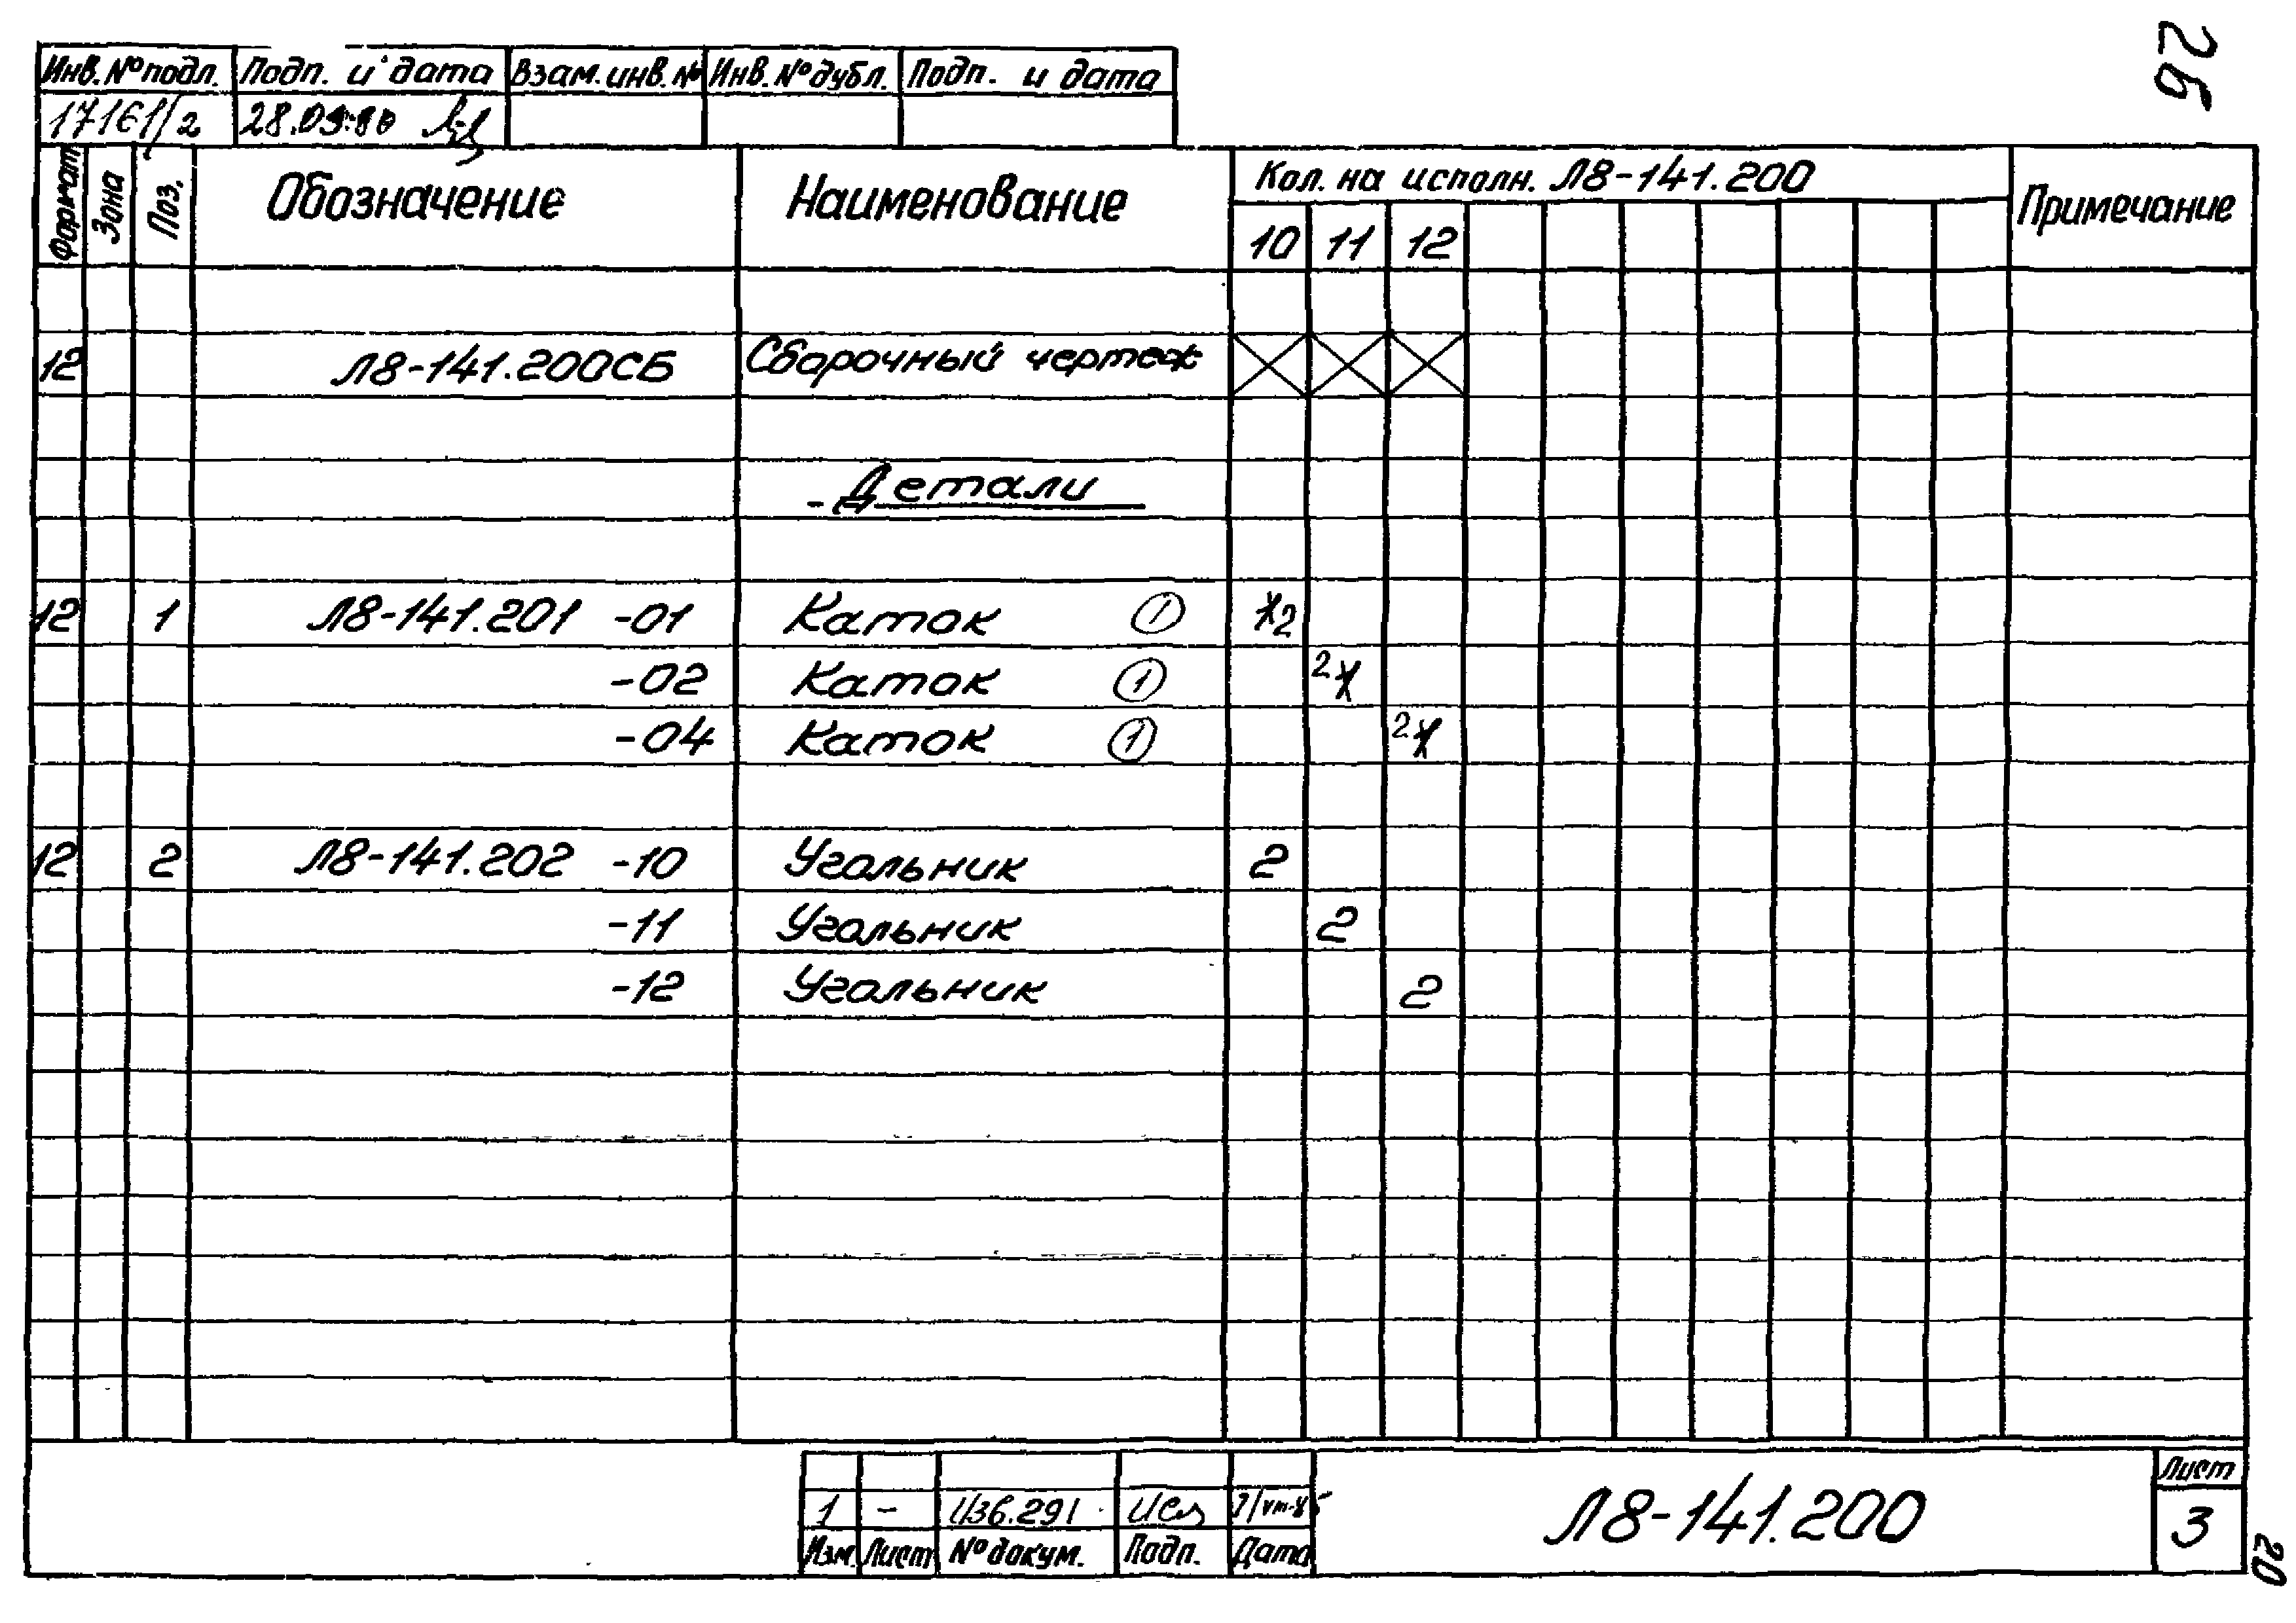 26
Инв. № подл. Подп. и дата Взам. инв. № Инв. № дубл. Подп. и дата
17161/2 28.09.80
Формат Зона Поз. Обозначение Наименование Кол. на исполн. Л8-141.200 Примечание
10 11 12
12 Л8-141.200СБ Сборочный чертеж
Детали
12 1 Л8-141.201 -01 Каток 1 1 2
-02 Каток 1 2 1
-04 Каток 1 2 1
12 2 Л8-141.202 -10 Угольник 2
-11 Угольник 2
-12 Угольник 2
1 - Изв.291
Изм Лист № докум. Подп. Дата
Л8-141.200
Лист
3
20